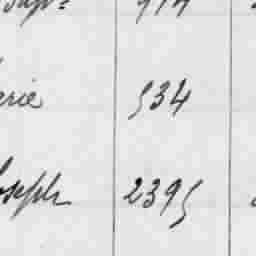 erie 534
oseph 2395